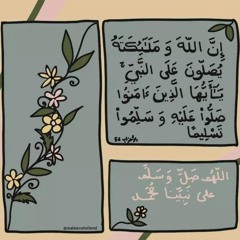 إِنَّ اللَّهَ وَ مَلَٰئِكَتَهُ
يُصَلُّونَ عَلَى النَّبِيِّ ۚ
يَٰأَيُّهَا الَّذِينَ ءَامَنُوا
صَلُّوا عَلَيْهِ وَ سَلِّمُوا
تَسْلِيمًا
الأحزاب ٥٦
اللَّهُمَّ صَلِّ وَ سَلِّم
على نَبِيِّنَا مُحَمَّد